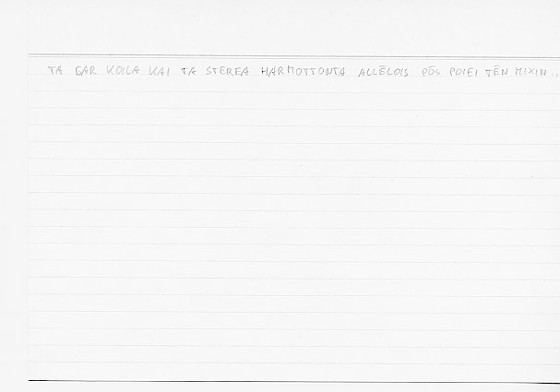 TA GAR KOILA KAI TA STEREA HARMOTTONTA ALLĒLOIS PŌS POIEI TĒN MIXIN...